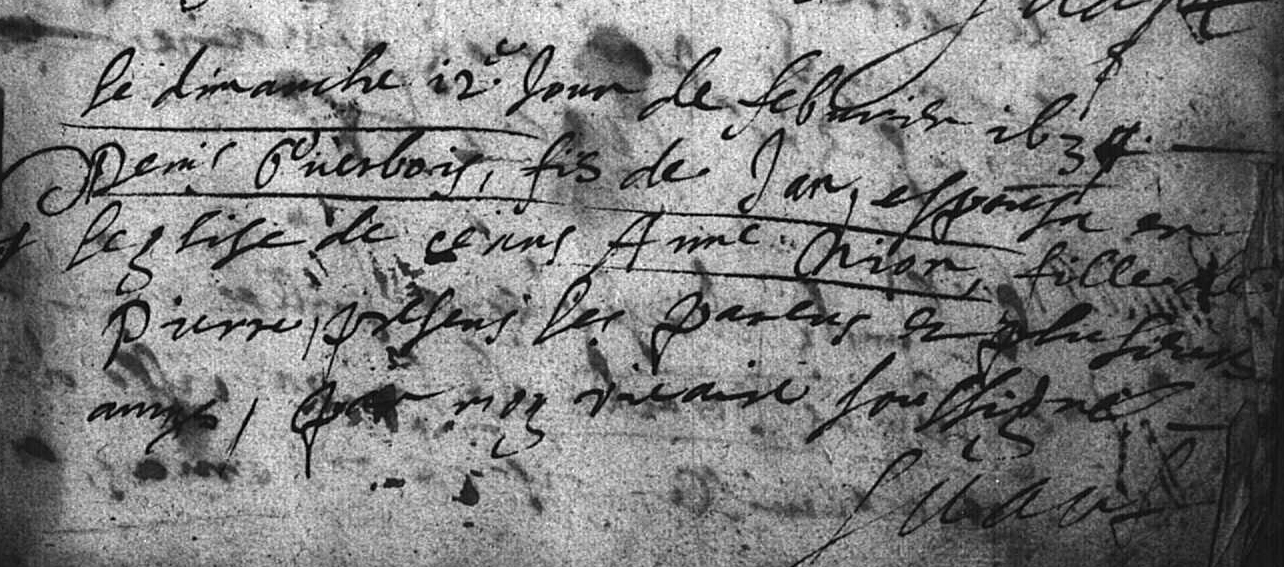 le dimanche 12e Jour de febvrier 163
Denis Querbois, fis de Jan, espousa en
leglise de ceans Anne Orion, fille de
Pierre, presens les parens et plusieurs
amys, par moy vicaire soussigné